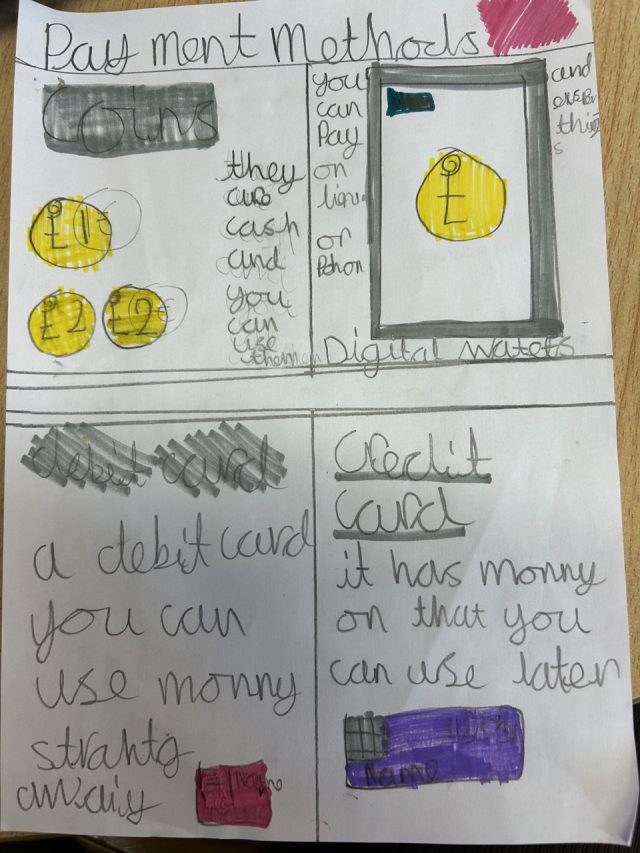 Payment Methods
Coins
they
are
cash
and
you
can
use
them
£1
£2
£2
you
can
Pay
on
or
£
and
thing
s
Digital watets
debit card
a debit card
you can
use monny
strahtg
awaiy
Credit
card
it has monny
on that you
can use later
name